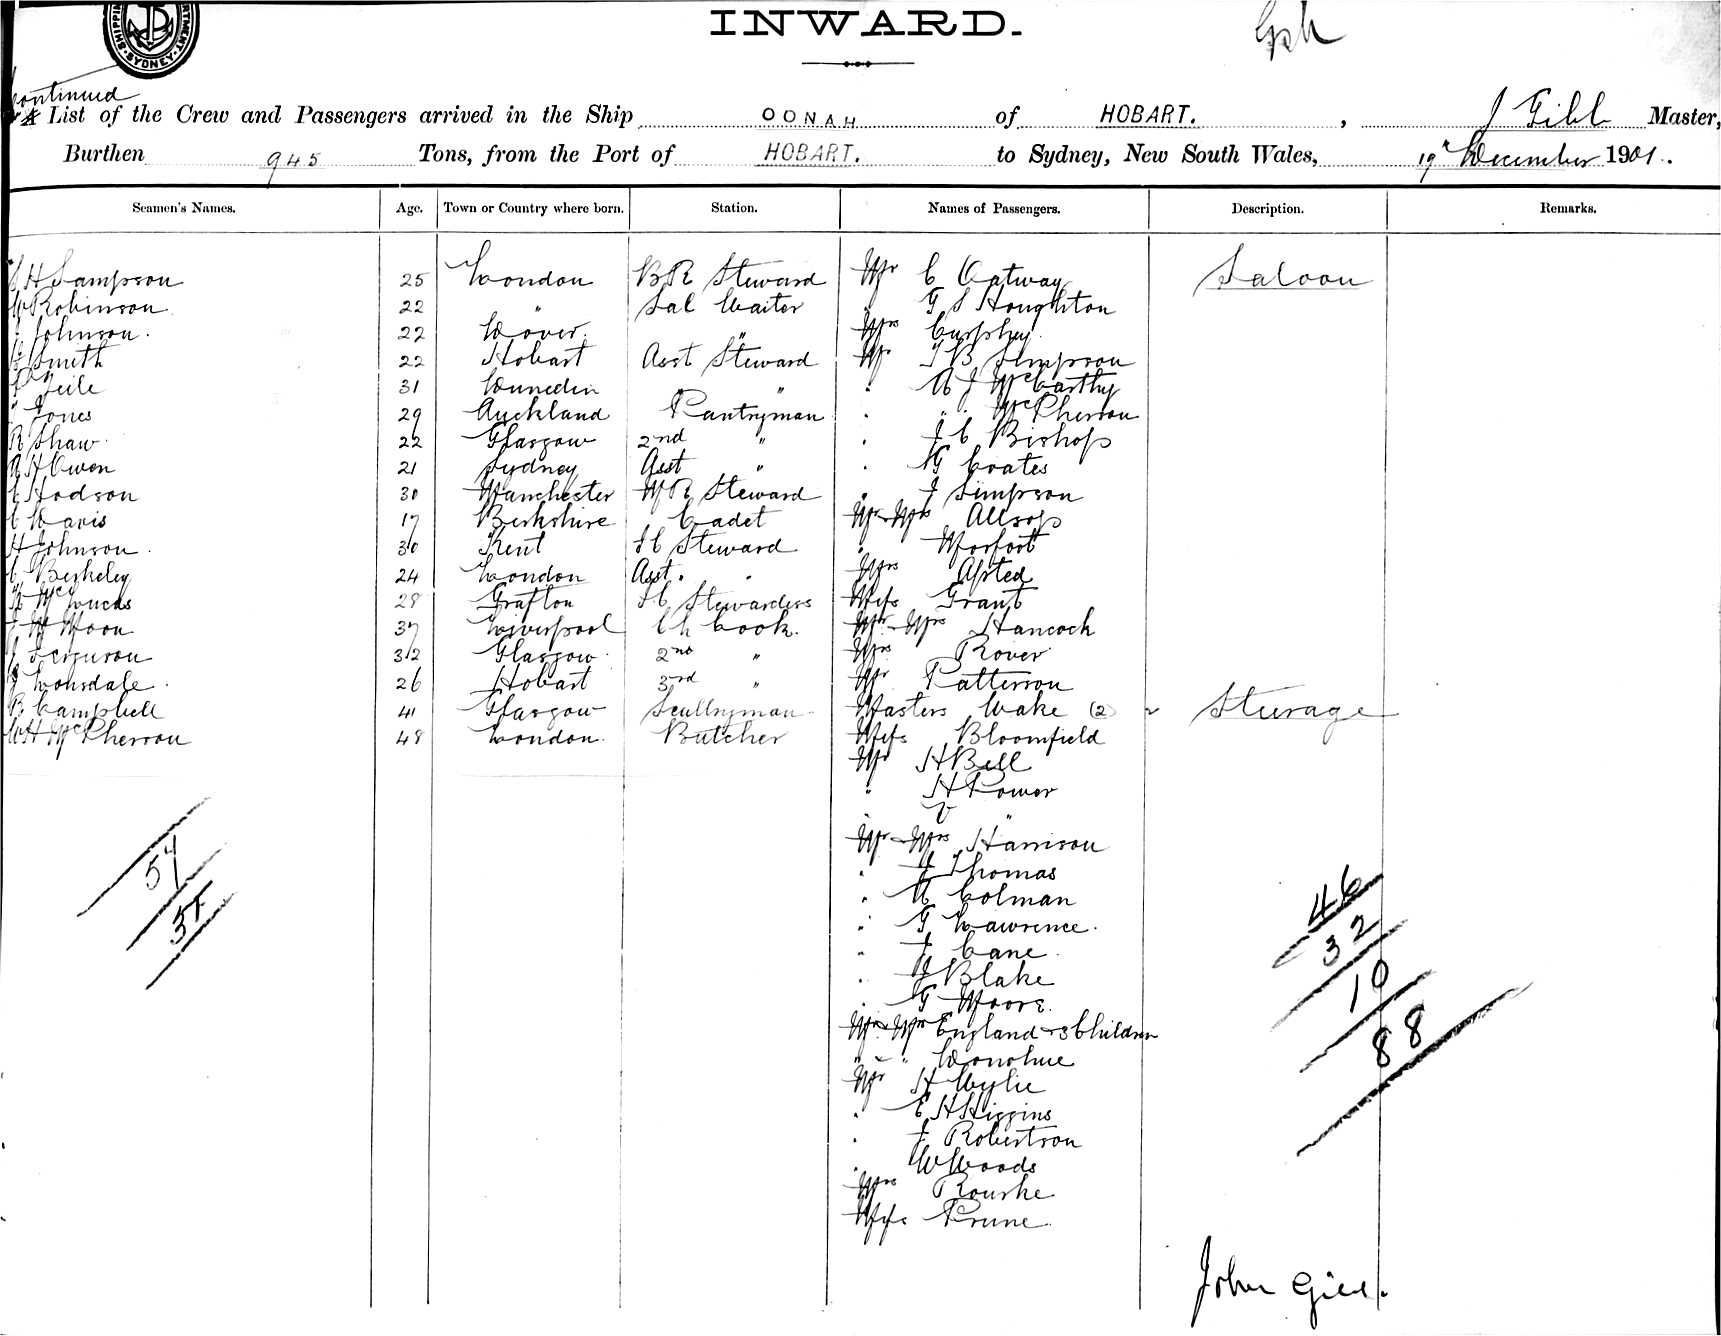 INWARD.
continued
List of the Crew and Passengers arrived in the Ship OONAH of HOBART. , J Gibb Master,
Burthen 945 Tons, from the Port of HOBART. to Sydney, New South Wales, 19th December 1901.
Seamen's Names. Age. Town or Country where born. Station. Names of Passengers. Description. Remarks.
H Sampson 25 London B R Steward Mr C Oatway Saloon
W Robinson 22 " Sal Waiter " G S Houghton
J Johnson. 22 Dover. " Mrs
Smith 22 Hobart Asst Steward Mr T B Simpson
31 Dunedin " " " A J McCarthy
Jones 29 Auckland Pantryman " " McPherson
R Shaw 22 Glasgow 2nd " " J C Bishop
A H Owen 21 Sydney Asst " " G Coates
C Hodson 30 Manchester M R Steward " J Simpson
C Davis 17 Berkshire Cadet Mr & Mrs Allsop
H Johnson 30 Kent F C Steward "
C Berkeley 24 London Asst. " Mrs
28 Grafton F C Stewardess Miss Grant
J W Moon 37 Liverpool Ch Cook. Mr & Mrs Hancock
J Ferguson 32 Glasgow 2nd " Mrs Rover
J Lonsdale. 26 Hobart 3rd " Mr Patterson
B Campbell 41 Glasgow Scullryman Masters Wake (2) Steerage
W H McPherson 48 London. Butcher Miss Bloomfield
Mr H Bell
" H Power
" "
Mr & Mrs Harrison
" J Thomas
" A Colman
" G Lawrence.
" J Cane
" J Blake
" G Moore.
Mr & Mrs England & 3 Children
" & " Donohue
Mr H Wylie
" E H Higgins
" J Robertson
" W Woods
Mrs Rourke
Miss Prune
54
54
46
32
10
88
John Gibb.